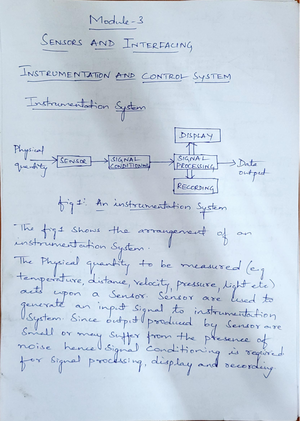 Module-3
SENSORS AND INTERFACING
INSTRUMENTATION AND CONTROL SYSTEM
Instrumentation System
DISPLAY
Physical
quantity
SENSOR
SIGNAL
CONDITIONING
SIGNAL
PROCESSING
Data
output
RECORDING
fig 1: An instrumentation System
The fig 1 shows the arrangement of an
instrumentation System.
The Physical quantity to be measured (eg
temperature, distane, velocity, pressure, light etc)
acts upon a Sensor. Sensor are used to
generate an input Signal to instrumentation
System. Since output produced by Sensor are
Small or may Suffer from the presence of
noise hence Signal Conditioning is required
for Signal processing, display and recording.